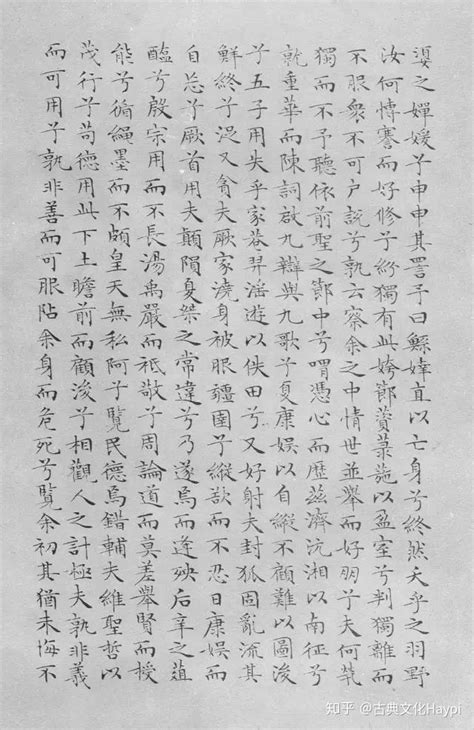 嬃之嬋媛兮申申其詈予曰鯀婞直以亡身兮終然夭乎之羽野
汝何博謇而好修兮紛獨有此姱節薋菉葹以盈室兮判獨離而
不服衆不可户說兮孰云察余之中情世並舉而好朋兮夫何煢
獨而不予聽依前聖之節中兮喟憑心而歷茲濟沅湘以南征兮
就重華而陳詞啟九辯與九歌兮夏康娛以自縱不顧難以圖後
兮五子用失乎家巷羿淫遊以佚田兮又好射夫封狐固亂流其
鮮終兮浞又貪夫厥家澆身被服彊圉兮縱欲而不忍日康娛而
自忘兮厥首用夫顛隕夏桀之常違兮乃遂焉而逢殃后辛之菹
醢兮殷宗用而不長湯禹嚴而祗敬兮周論道而莫差舉賢而授
能兮循繩墨而不頗皇天無私阿兮覽民德焉錯輔夫維聖哲以
茂行兮苟德用此下土瞻前而顧後兮相觀人之計極夫孰非義
而可用兮孰非善而可服阽余身而危死兮覽余初其猶未悔不
知乎 @古典文化Haypi